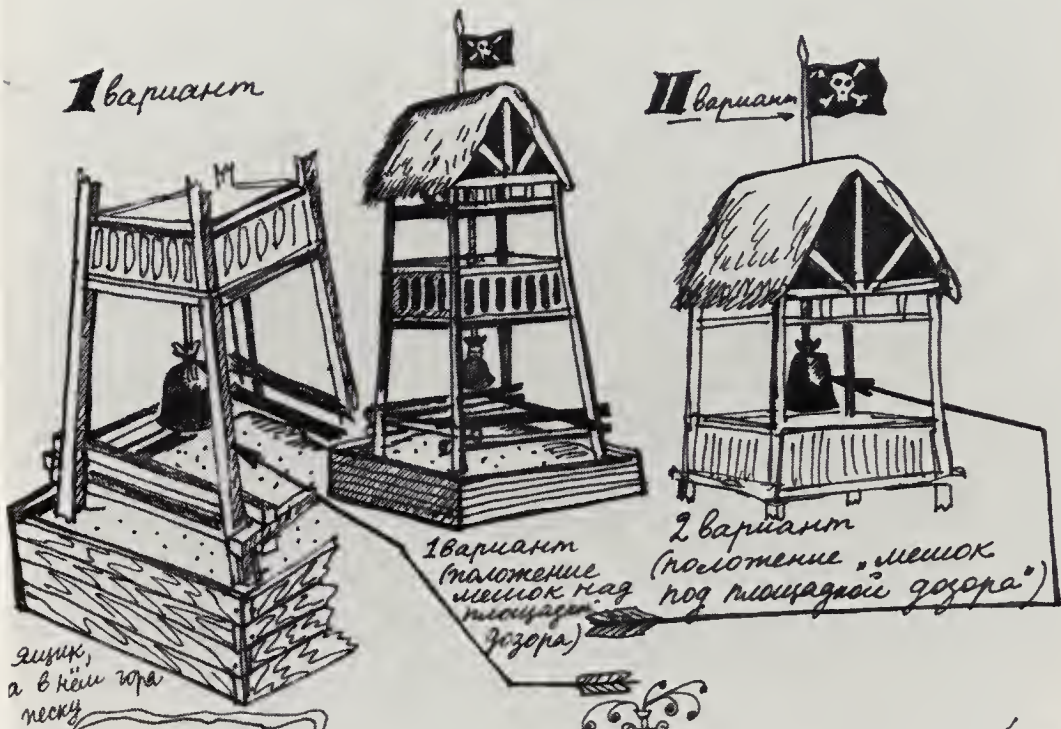 1 вариант
II вариант
1 вариант
(положение
мешок над
площадкой
дозора)
2 вариант
(положение „мешок
под площадкой дозора")
ящик,
а в нём гора
песку